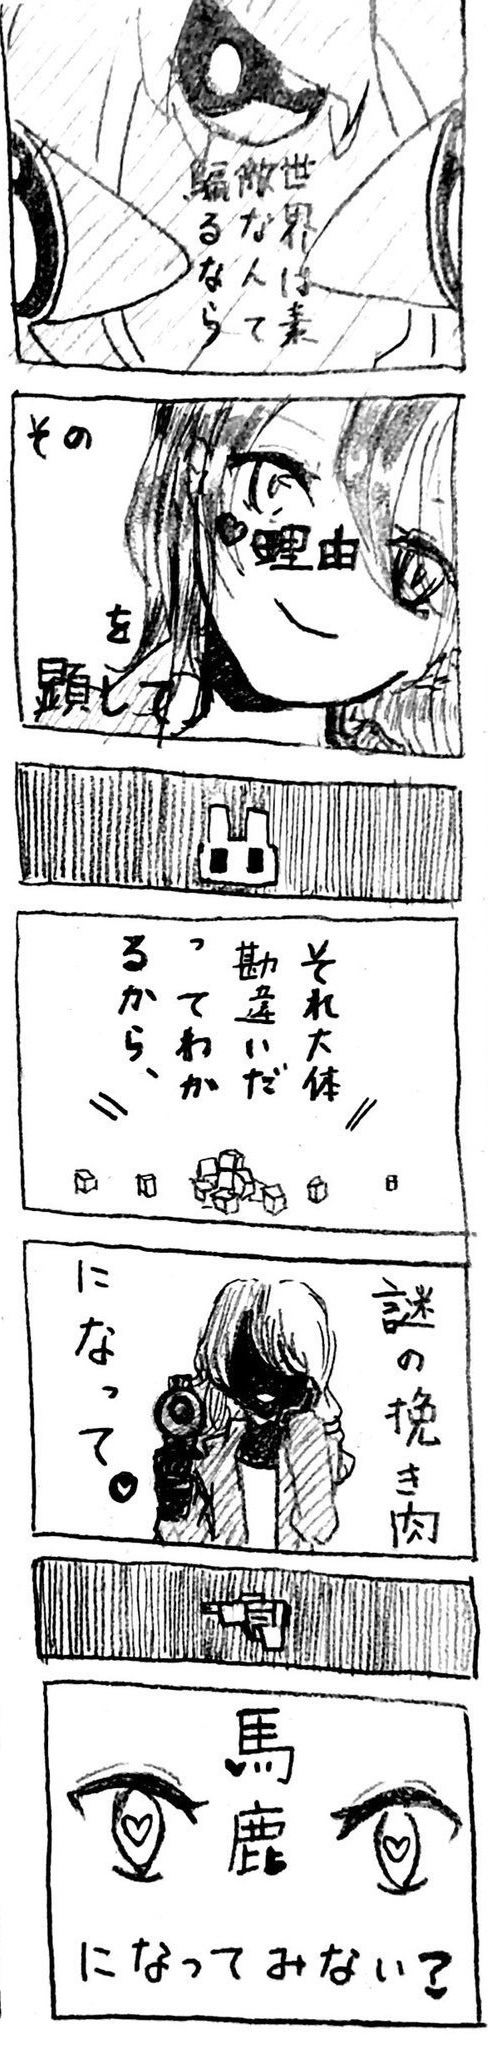 世界は素
敵なんて
騙るなら
その
理由
を
顕して
それ大体
勘違いだ
ってわか
るから、
謎の挽き肉
になって
馬鹿
になってみない?